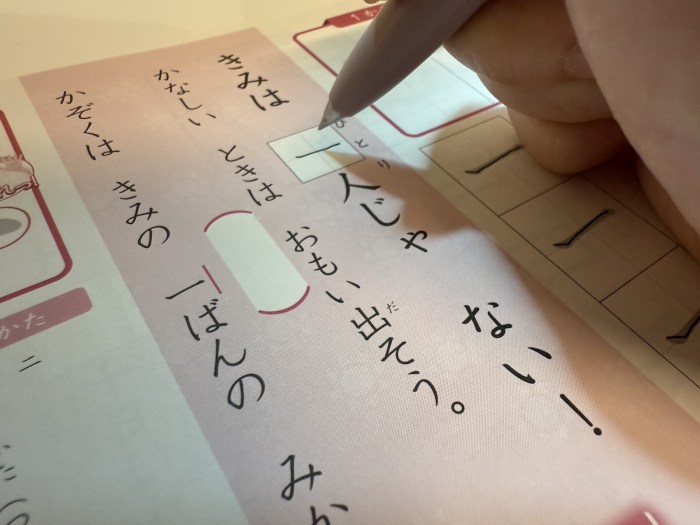 1か
一
一
一
きみは 一人じゃ ない!
ひとり
かなしい ときは おもい出そう。
だ
かぞくは きみの 一ばんの みか
かた